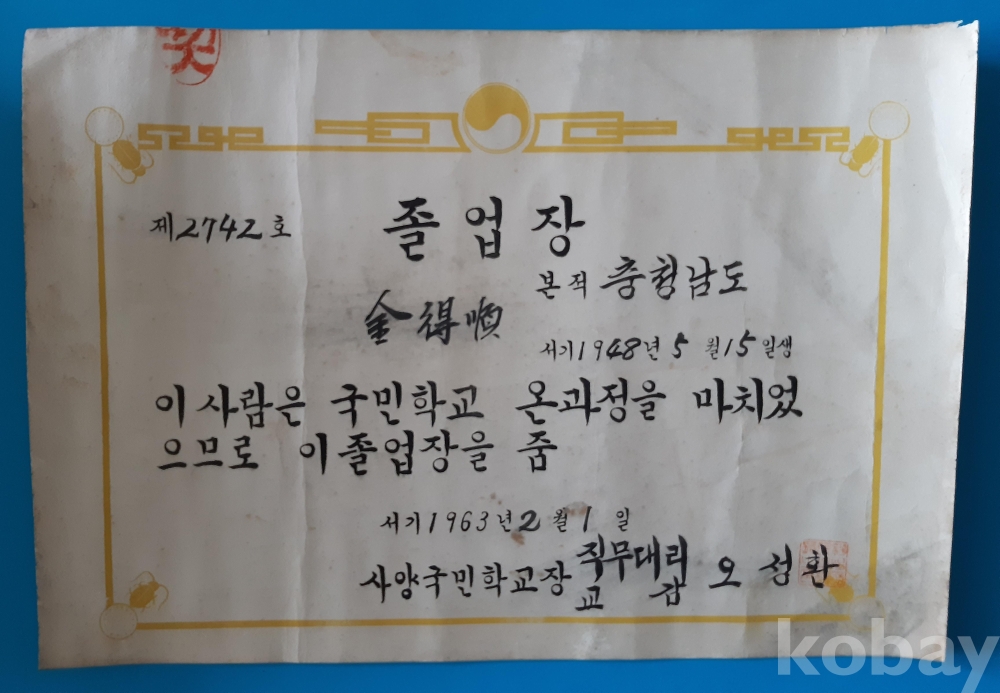 제2742호
졸업장
본적 충청남도
金得順
서기1948년 5월15일생
이 사람은 국민학교 온과정을 마치었
으므로 이 졸업장을 줌
서기1963년 2월 1일
사양국민학교장 직무대리
교감 오성환
kobay